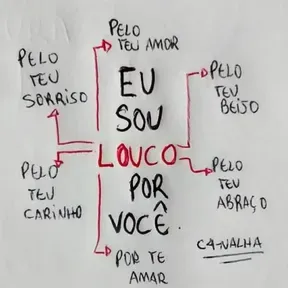 PELO
TEU AMOR
PELO
TEU
SORRISO
EU
SOU
LOUCO
POR
VOCÊ
PELO
TEU
BEIJO
PELO
TEU
CARINHO
PELO
TEU
ABRAÇO
POR TE
AMAR
C4-NALHA